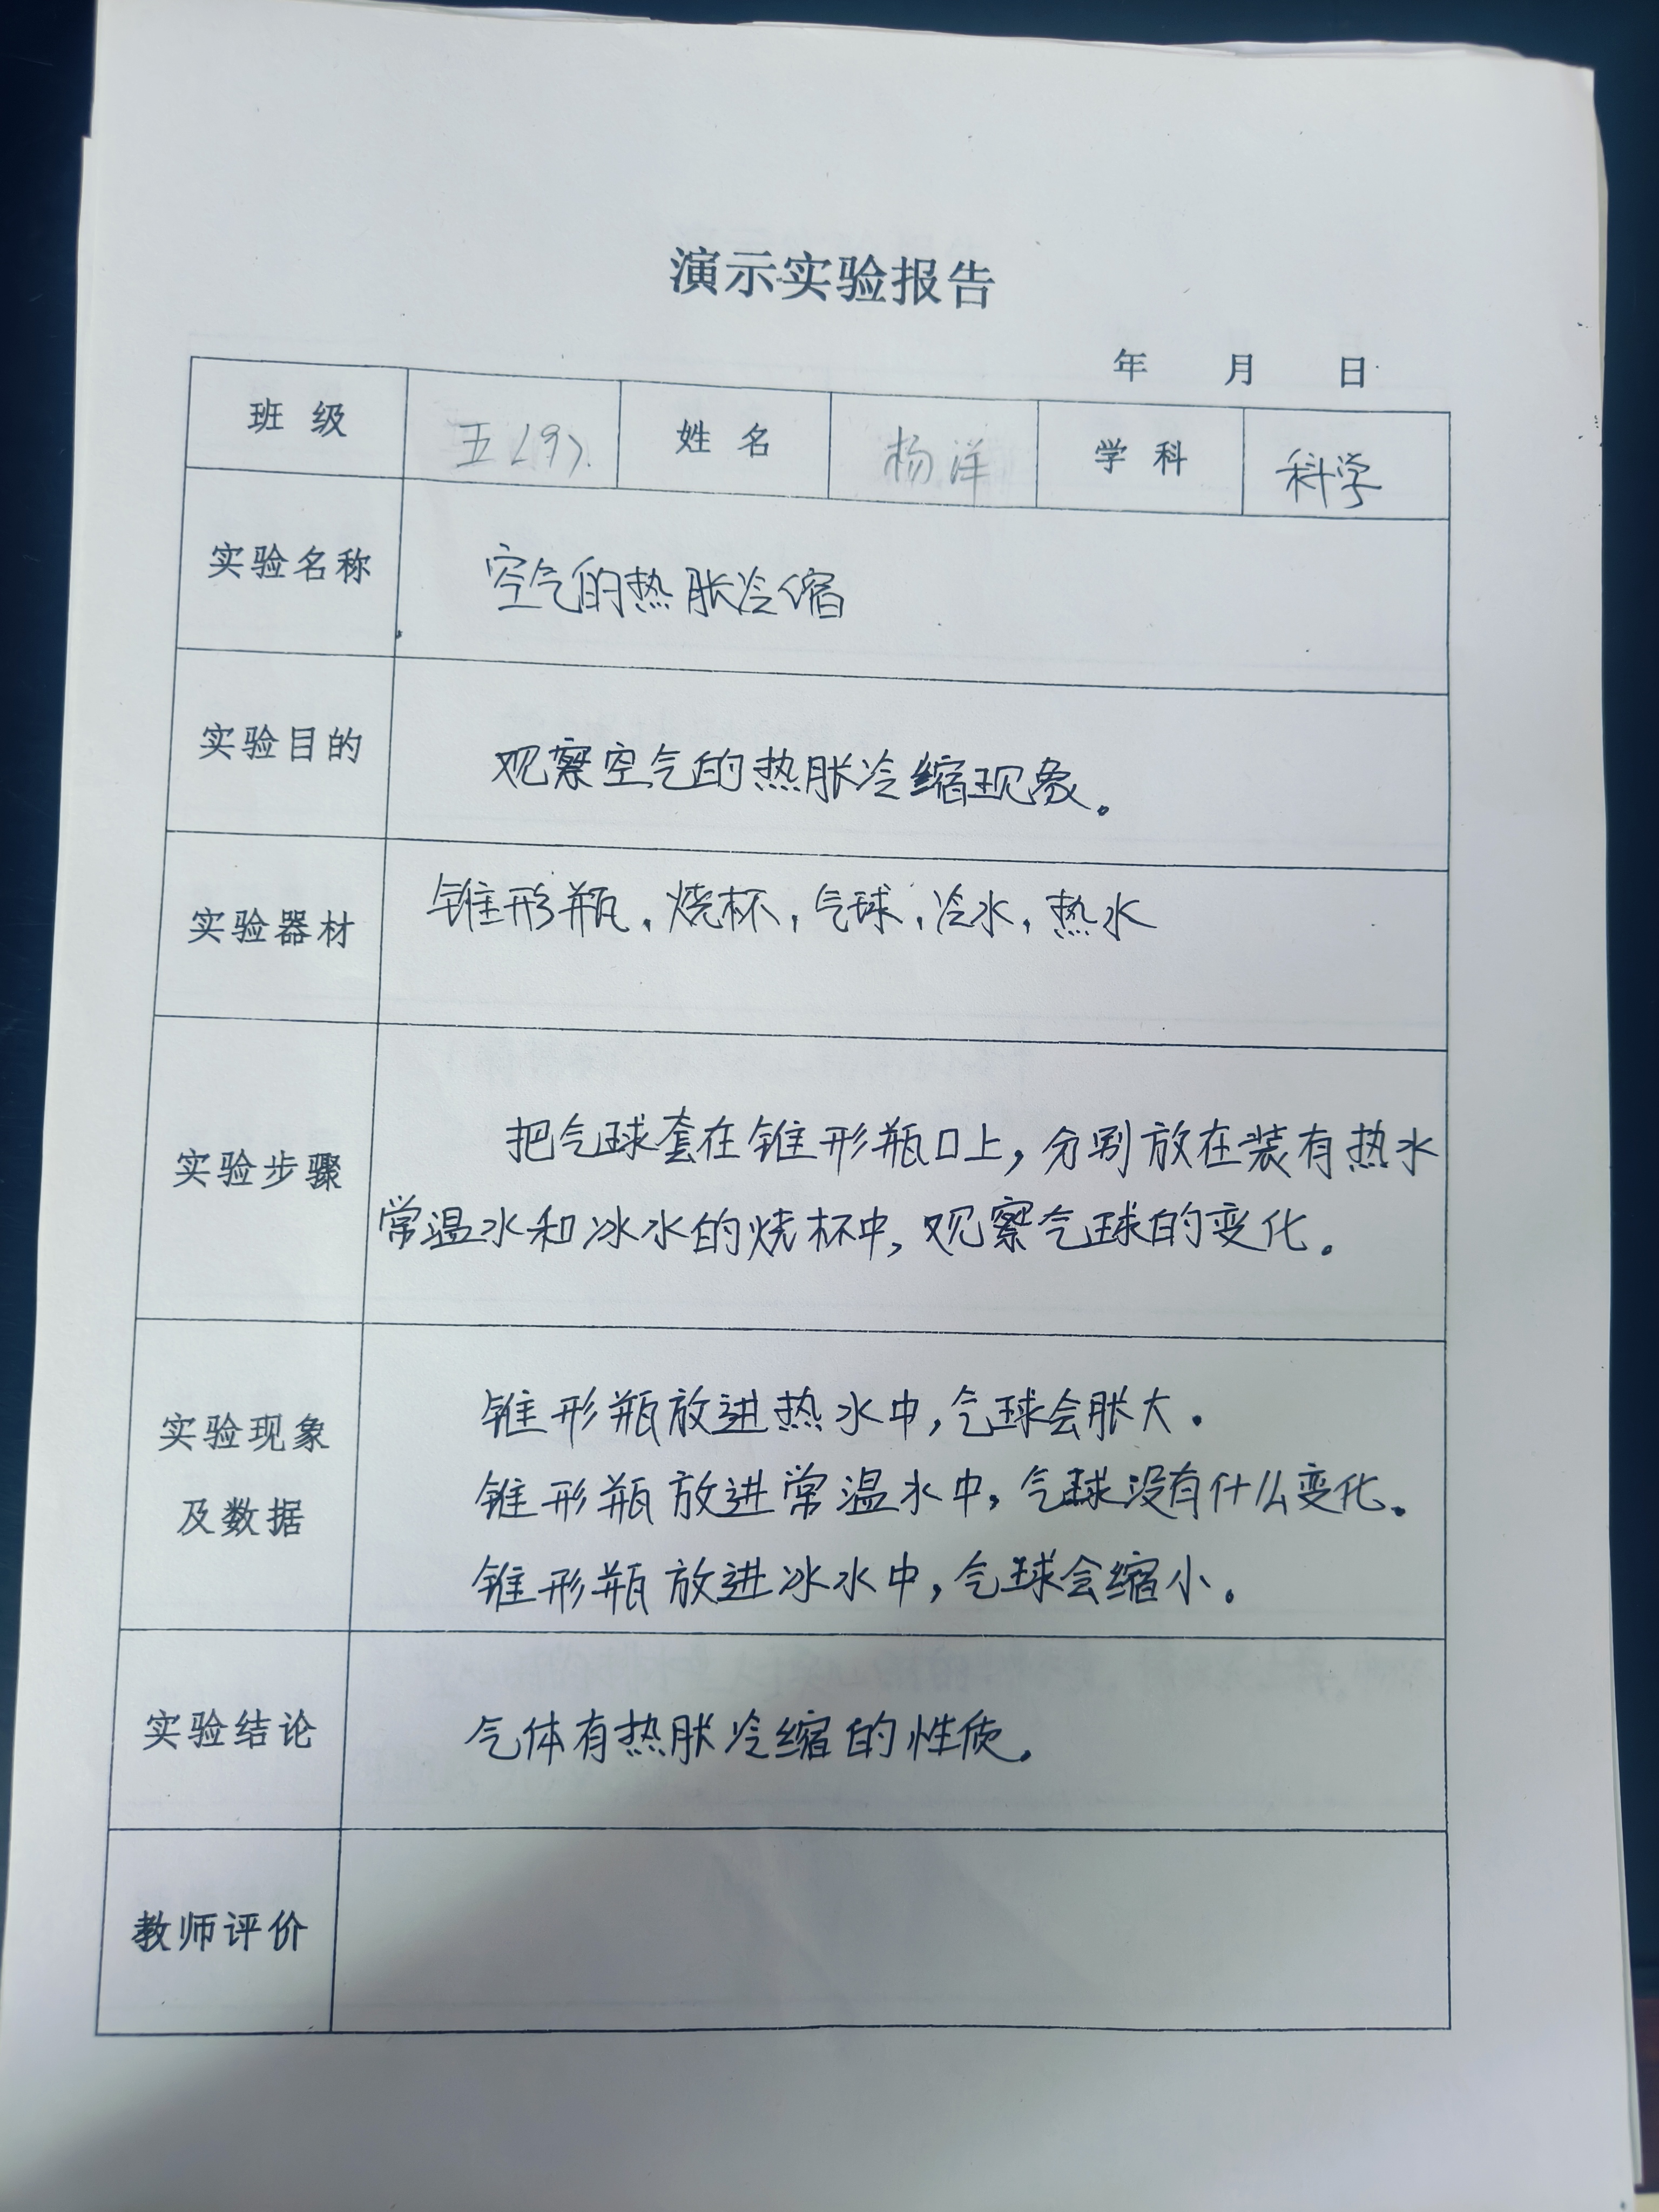 演示实验报告
年 月 日
班 级 五(9). 姓 名 杨洋 学 科 科学
实验名称 空气的热胀冷缩
实验目的 观察空气的热胀冷缩现象。
实验器材 锥形瓶，烧杯，气球，冷水，热水
把气球套在锥形瓶口上，分别放在装有热水
实验步骤
常温水和冰水的烧杯中，观察气球的变化。
锥形瓶放进热水中，气球会胀大.
实验现象
锥形瓶放进常温水中，气球没有什么变化。
及数据
锥形瓶放进冰水中，气球会缩小。
实验结论 气体有热胀冷缩的性质。
教师评价